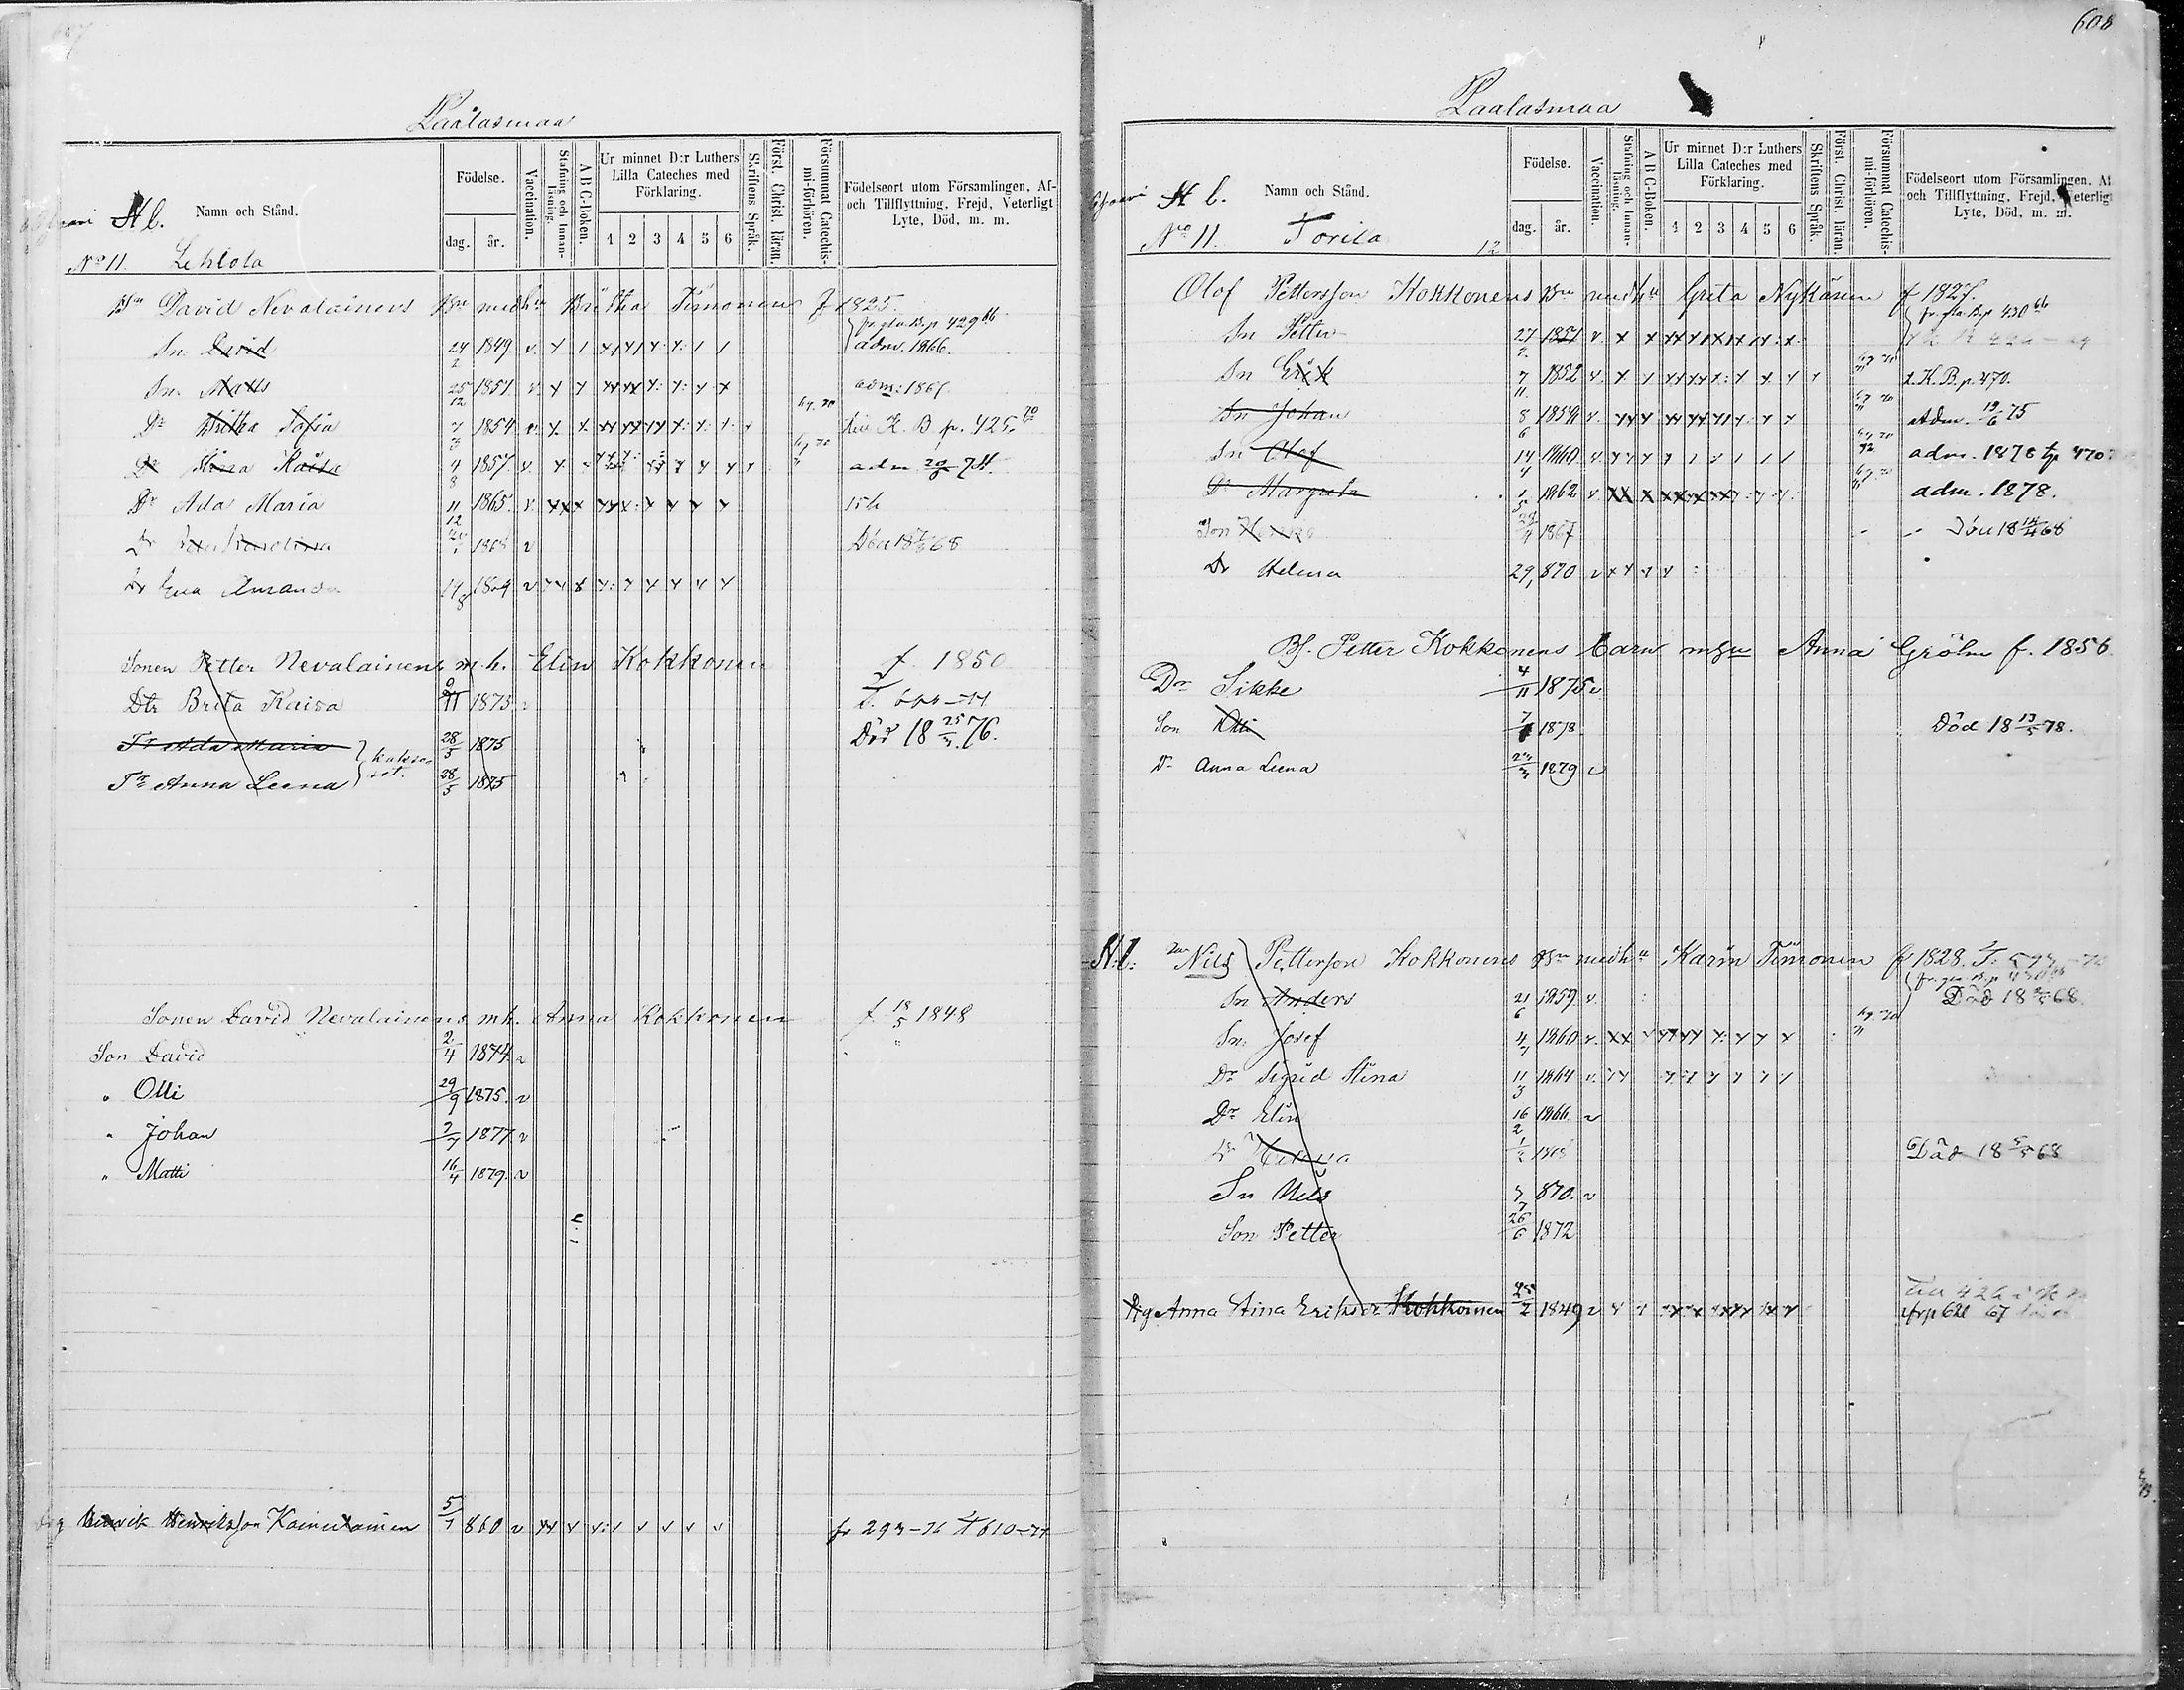 Paalasmaa
Hb. Namn och Stånd.
Födelse.
dag. år.
Vaccination.
Stafning och Innan-läsning.
A B C-Boken.
Ur minnet D:r Luthers Lilla Cateches med Förklaring.
1 2 3 4 5 6
Skriftens Språk.
Först. Christ. läran.
Försummat Catechis-mi-förhören.
Födelseort utom Församlingen, Af- och Tillflyttning, Frejd, Veterligt Lyte, Död, m. m.
No 11. Lehlola
David Nevalainens Bn med hu Britha Timonen f 1825.
Sn. David 24/2 1849. v. adm. 1866.
Sn. Matts 25/12 1851 v. adm: 1867.
Dr Britha Sofia 7/3 1854 v. K. B. p. 425.
Dr Stina Kaisa 4/8 1857. v. adm
Dr Ada Maria 11/12 1865. v.
Dr 1868 v Död 18 68
Dr Eva Amanda 14/8 1869 v
Sonen Petter Nevalainens m.h. Elin Kokkonen f. 1850
Dtr Brita Kaisa 1873. v
Tr Ada Maria 28/5 1875 Död 18 25/3 76.
Tr Anna Leena 28/5 1875
Sonen David Nevalainens mh. Anna Kokkonen f. 18/5 1848
Son David 2/4 1874. v
" Olli 29/9 1875. v
" Johan 2/7 1877. v
" Matti 16/4 1879. v
Henrik Henriksson Kainulainen 5/7 860 v fr 293-76 t 610-77
608
Paalasmaa
H b. Namn och Stånd.
Födelse.
dag. år.
Vaccination.
Stafning och Innan-läsning.
A B C-Boken.
Ur minnet D:r Luthers Lilla Cateches med Förklaring.
1 2 3 4 5 6
Skriftens Språk.
Först. Christ. läran.
Försummat Catechis-mi-förhören.
Födelseort utom Församlingen, Af och Tillflyttning, Frejd, Veterligt Lyte, Död, m. m.
No 11. Torila 12
Olof Pettersson Kokkonens Bn med hu Greta Nykänen f 1827.
Sn Petter 27/2 1851 v.
Sn Erik 7/11 1852 v. K. B. p. 470.
Sn Johan 8/6 1859 v. Adm. 19/6 75
Sn Olof 14/4 1860 v. adm. 1878
Dr Margreta 1/5 1862 v. adm. 1878.
Son 1867 Död 18 68
Dr Helena 29/1 870 v
Bf. Petter Kokkonens barn m hu Anna Gröhn f. 1856
Dr Sikke 4/11 1875 v
Son Olli 1878 Död 18 13/5 78.
Dr Anna Leena 1879 v
H.b. Nils Petterson Kokkonens Bn med hu Karin Timonen f 1828.
Sn Anders 21/6 1859 v. Död 18 68
Sn. Josef 4/7 1860 v.
Dr Sigrid Stina 11/3 1864 v.
Dr Elin 16/2 1866 v
Dr Helena 1868 Död 18 68
Sn Nils 7/7 870. v
Son Petter 26/6 1872
Anna Stina Eriksdr Kokkoinen 1849 v